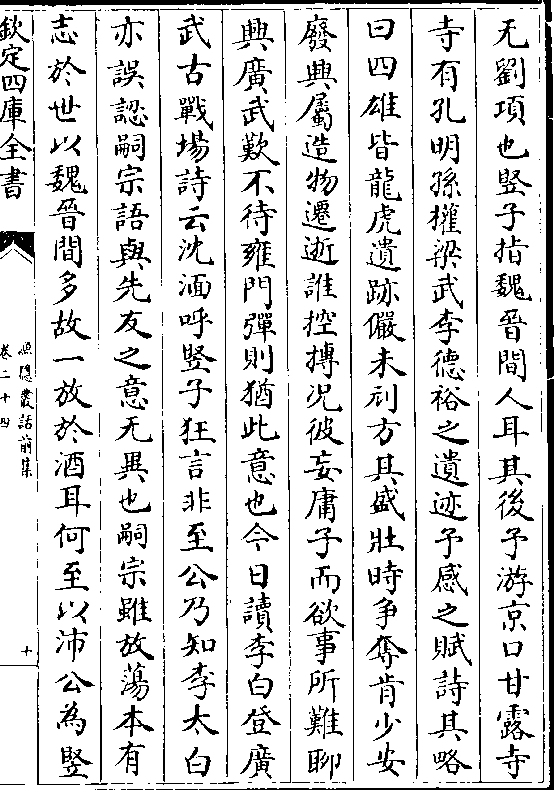 无劉項也竪子指魏晉間人耳其後予游京口甘露寺
寺有孔明孫權梁武李德裕之遺迹予感之賦詩其略
曰四雄皆龍虎遺跡儼未刓方其盛壯時爭奪肯少安
廢興屬造物遷逝誰控摶況彼妄庸子而欲事所難聊
興廣武歎不待雍門彈則猶此意也今日讀李白登廣
武古戰場詩云沈湎呼竪子狂言非至公乃知李太白
亦誤認嗣宗語與先友之意无異也嗣宗雖放蕩本有
志於世以魏晉間多故一放於酒耳何至以沛公為竪
欽定四庫全書
漁隱叢話前集
卷二十四
十